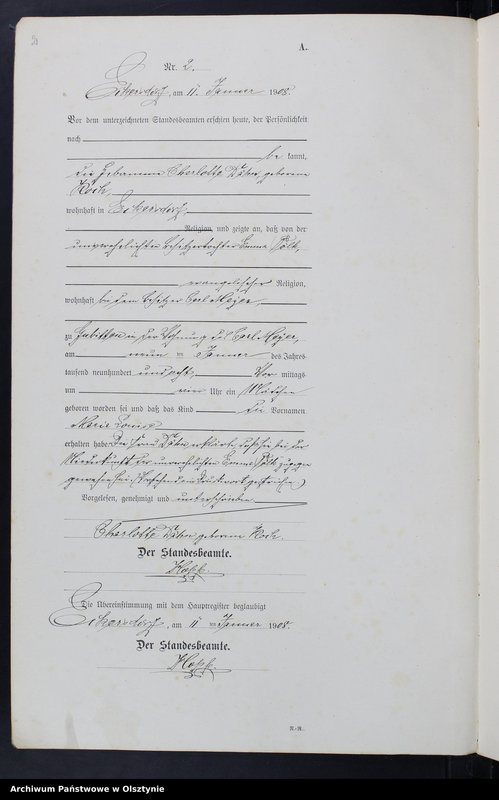 A.
Nr. 2.
Eckersdorf, am 11. Januar 1908.
Vor dem unterzeichneten Standesbeamten erschien heute, der Persönlichkeit
nach
be kannt,
die Hebamme Charlotte Dähn geborene
Koch,
wohnhaft in Eckersdorf,
Religion, und zeigte an, daß von der
unverehelichten Besitzertochter Emma Pölk,
evangelischer Religion,
wohnhaft bei dem Besitzer Carl Meyer,
zu in der Wohnung des Carl Meyer,
am neun ten Januar des Jahres
tausend neunhundert und acht, Vor mittags
um vier Uhr ein Mädchen
geboren worden sei und daß das Kind die Vornamen
Marie Louise
erhalten habe. Die Frau Dähn erklärte, daß sie bei der
Niederkunft der unverehelichten Emma Pölk zugegen
gewesen sei. (Vorstehend ein Druckwort gestrichen.)
Vorgelesen, genehmigt und unterschrieben
Charlotte Dähn geborene Koch.
Der Standesbeamte.
Die Übereinstimmung mit dem Hauptregister beglaubigt
Eckersdorf, am 11 ten Januar 1908.
Der Standesbeamte.
Archiwum Państwowe w Olsztynie